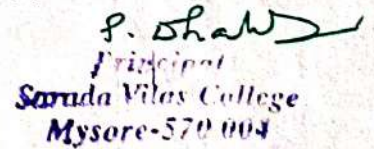 Principal
Sarada Vilas College
Mysore-570 004